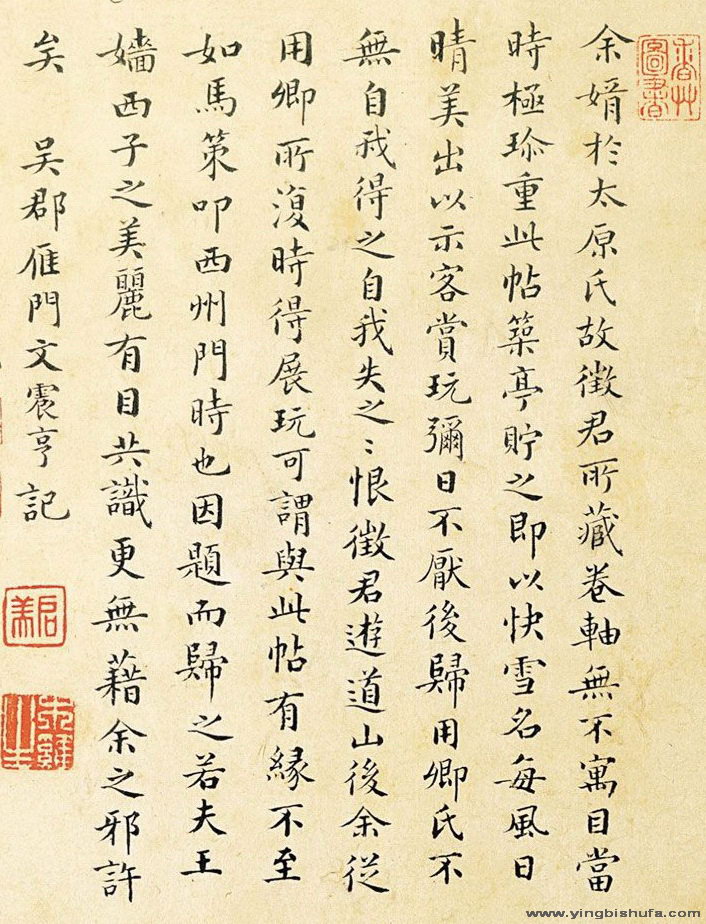 余婿於太原氏故徵君所藏卷軸無不寓目當
時極珍重此帖築亭貯之即以快雪名每風日
晴美出以示客賞玩彌日不厭後歸用卿氏不
無自我得之自我失之〻恨徵君遊道山後余從
用卿所復時得展玩可謂與此帖有緣不至
如馬策叩西州門時也因題而歸之若夫王
嬙西子之美麗有目共識更無藉余之邪許
矣 吳郡雁門文震亨記
圖書
www.yingbishufa.com